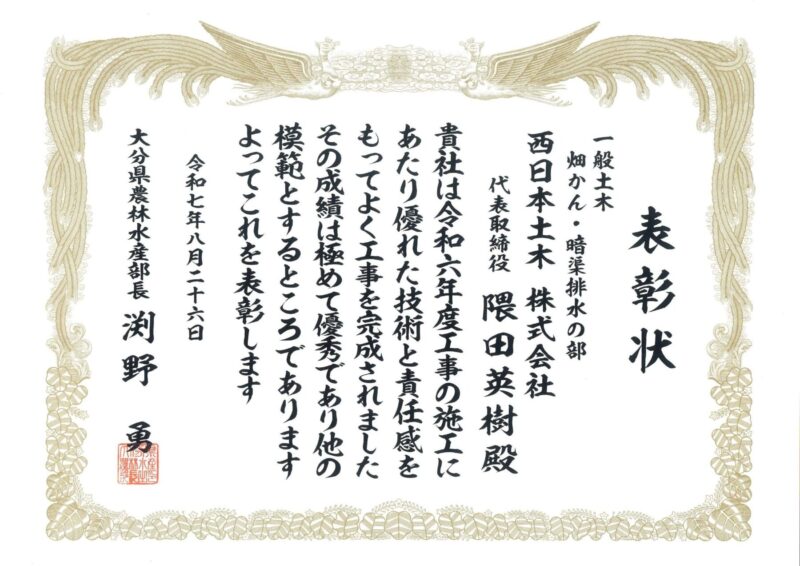 表彰状
一般土木
畑かん・暗渠排水の部
西日本土木 株式会社
代表取締役 隈田英樹殿
貴社は令和六年度工事の施工に
あたり優れた技術と責任感を
もってよく工事を完成されました
その成績は極めて優秀であり他の
模範とするところであります
よってこれを表彰します
令和七年八月二十六日
大分県農林水産部長 渕野 勇